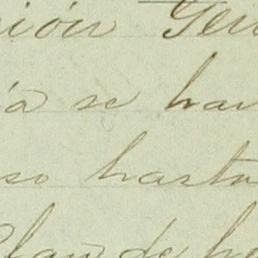 nión Gen
a se hav
so hasta
Plan de